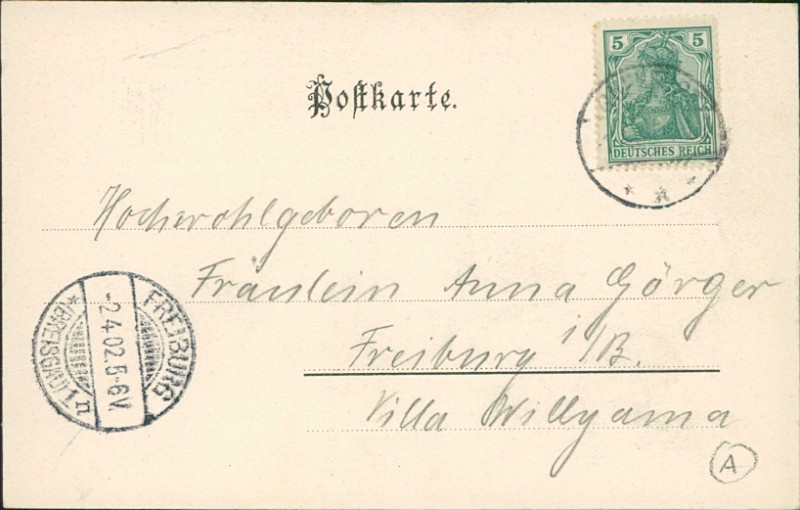 5 5
DEUTSCHES REICH
Postkarte.
Hochwohlgeboren
Fräulein Anna Görger
Freiburg i/B.
Villa Willyama
FREIBURG
-2.4.02.5-6V.
*(BREISGAU) 1n
A